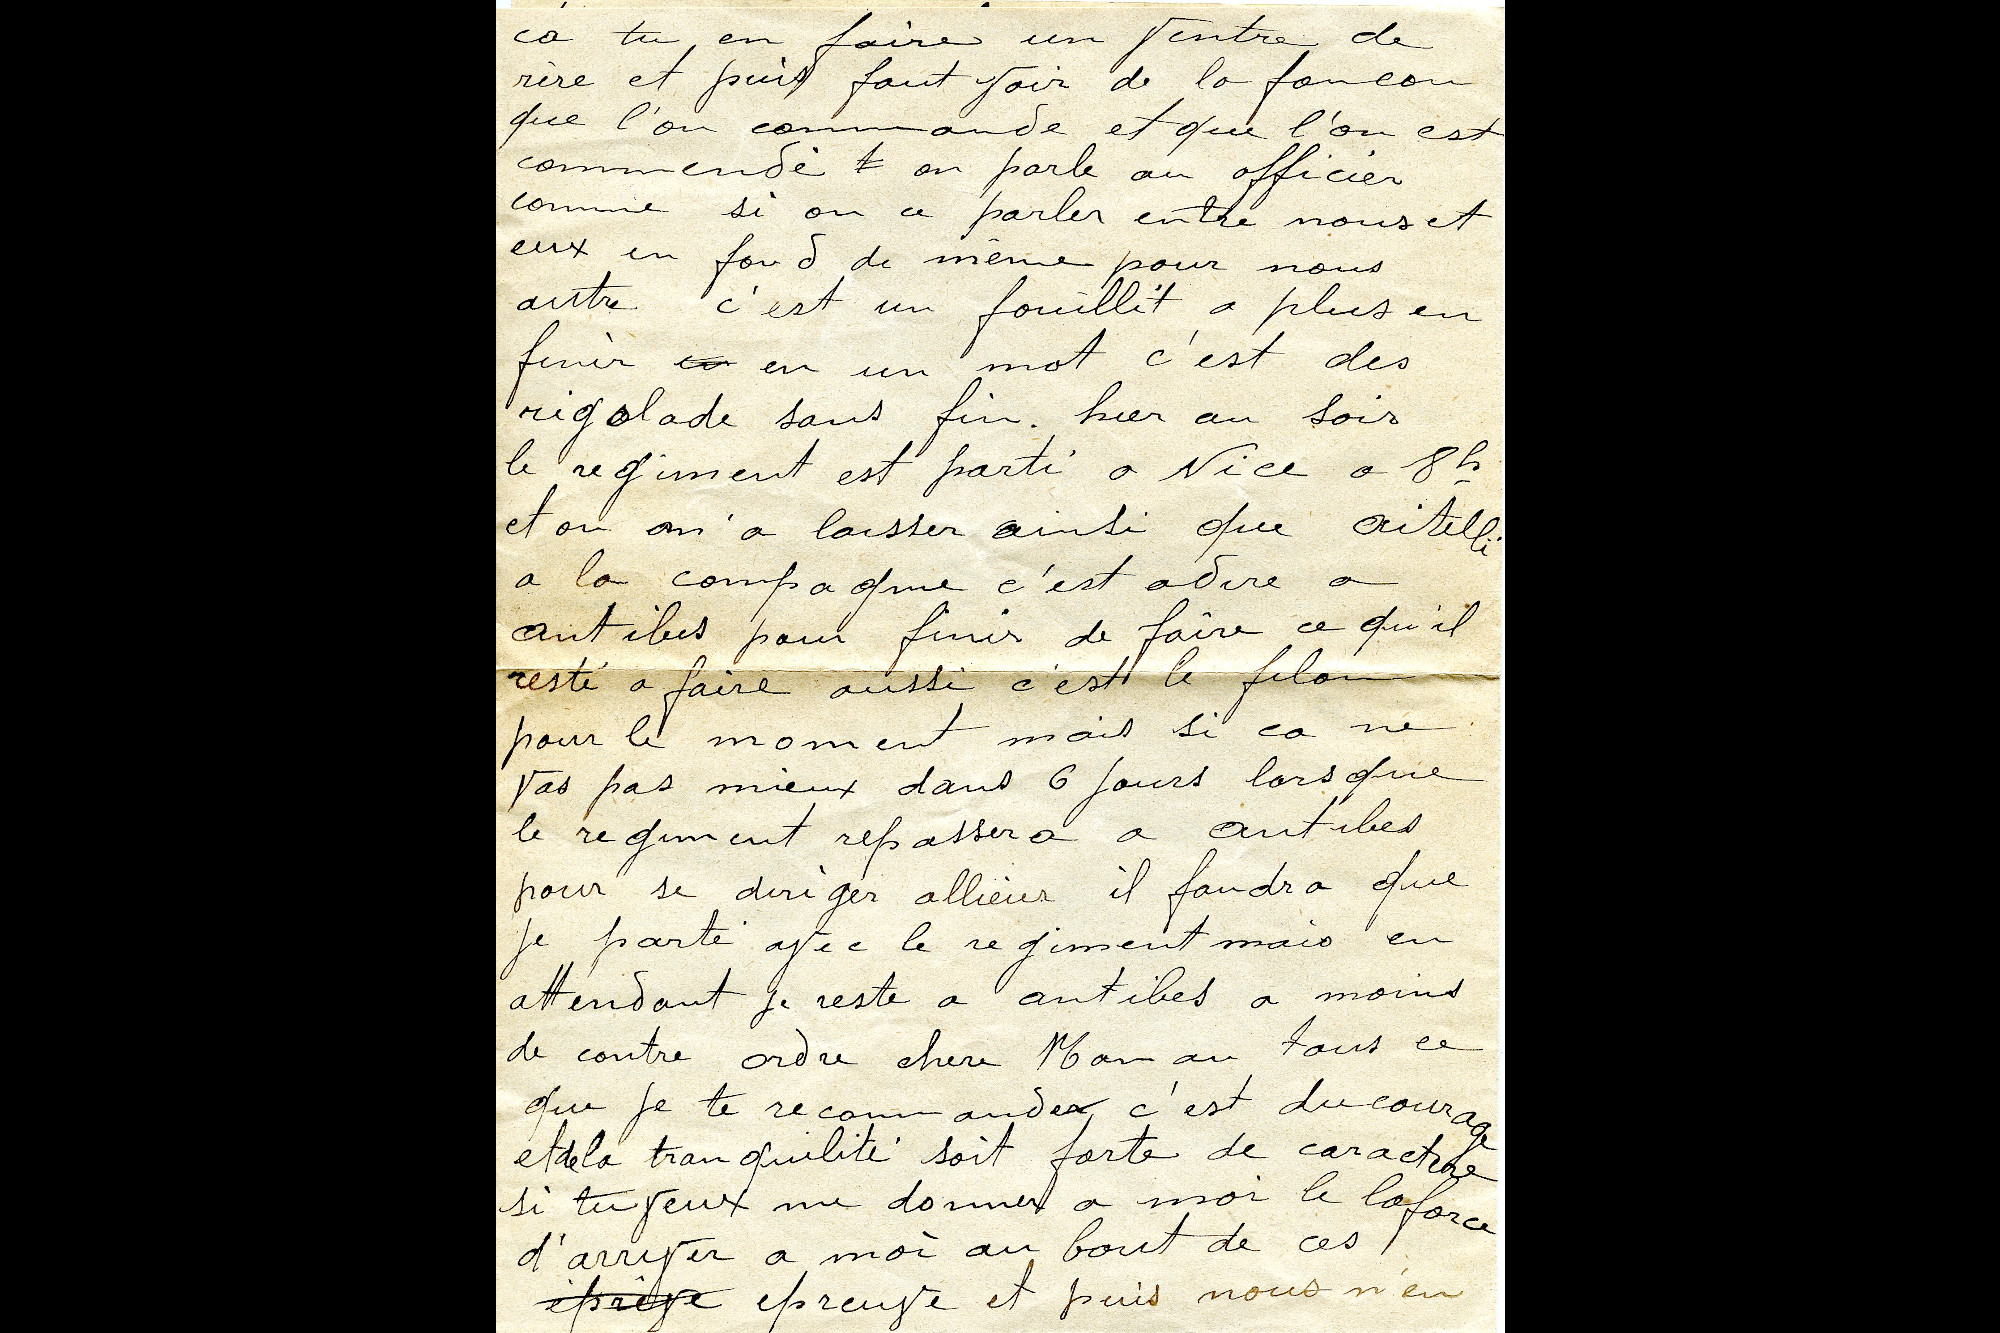 ca tu en faire un ventre de
rire et puis faut voir de la foncon
que l'on commande et que l'on est
commendé on parle au officier
comme si on ce parler entre nous et
eux en fond de même pour nous
autre c'est un fouillit a plus en
finir en un mot c'est des
rigolade sans fin. hier au soir
le regiment est parti a Nice a 8h
et on m'a laisser ainsi que aitelli
a la compagnie c'est adire a
antibes pour finir de faire ce qu'il
reste a faire aussi c'est le filon
pour le moment mais si ca ne
vas pas mieux dans 6 jours lorsque
le regiment repassera a antibes
pour se diriger allieur il faudra que
je parte avec le regiment mais en
attendant je reste a antibes a moins
de contre ordre chere Maman tous ce
que je te recommande c'est du courage
et de la tranquilité soit forte de caractere
si tu veux me donner a moi le la force
d'arriver a moi au bout de ces
epreuve et puis nous n'en